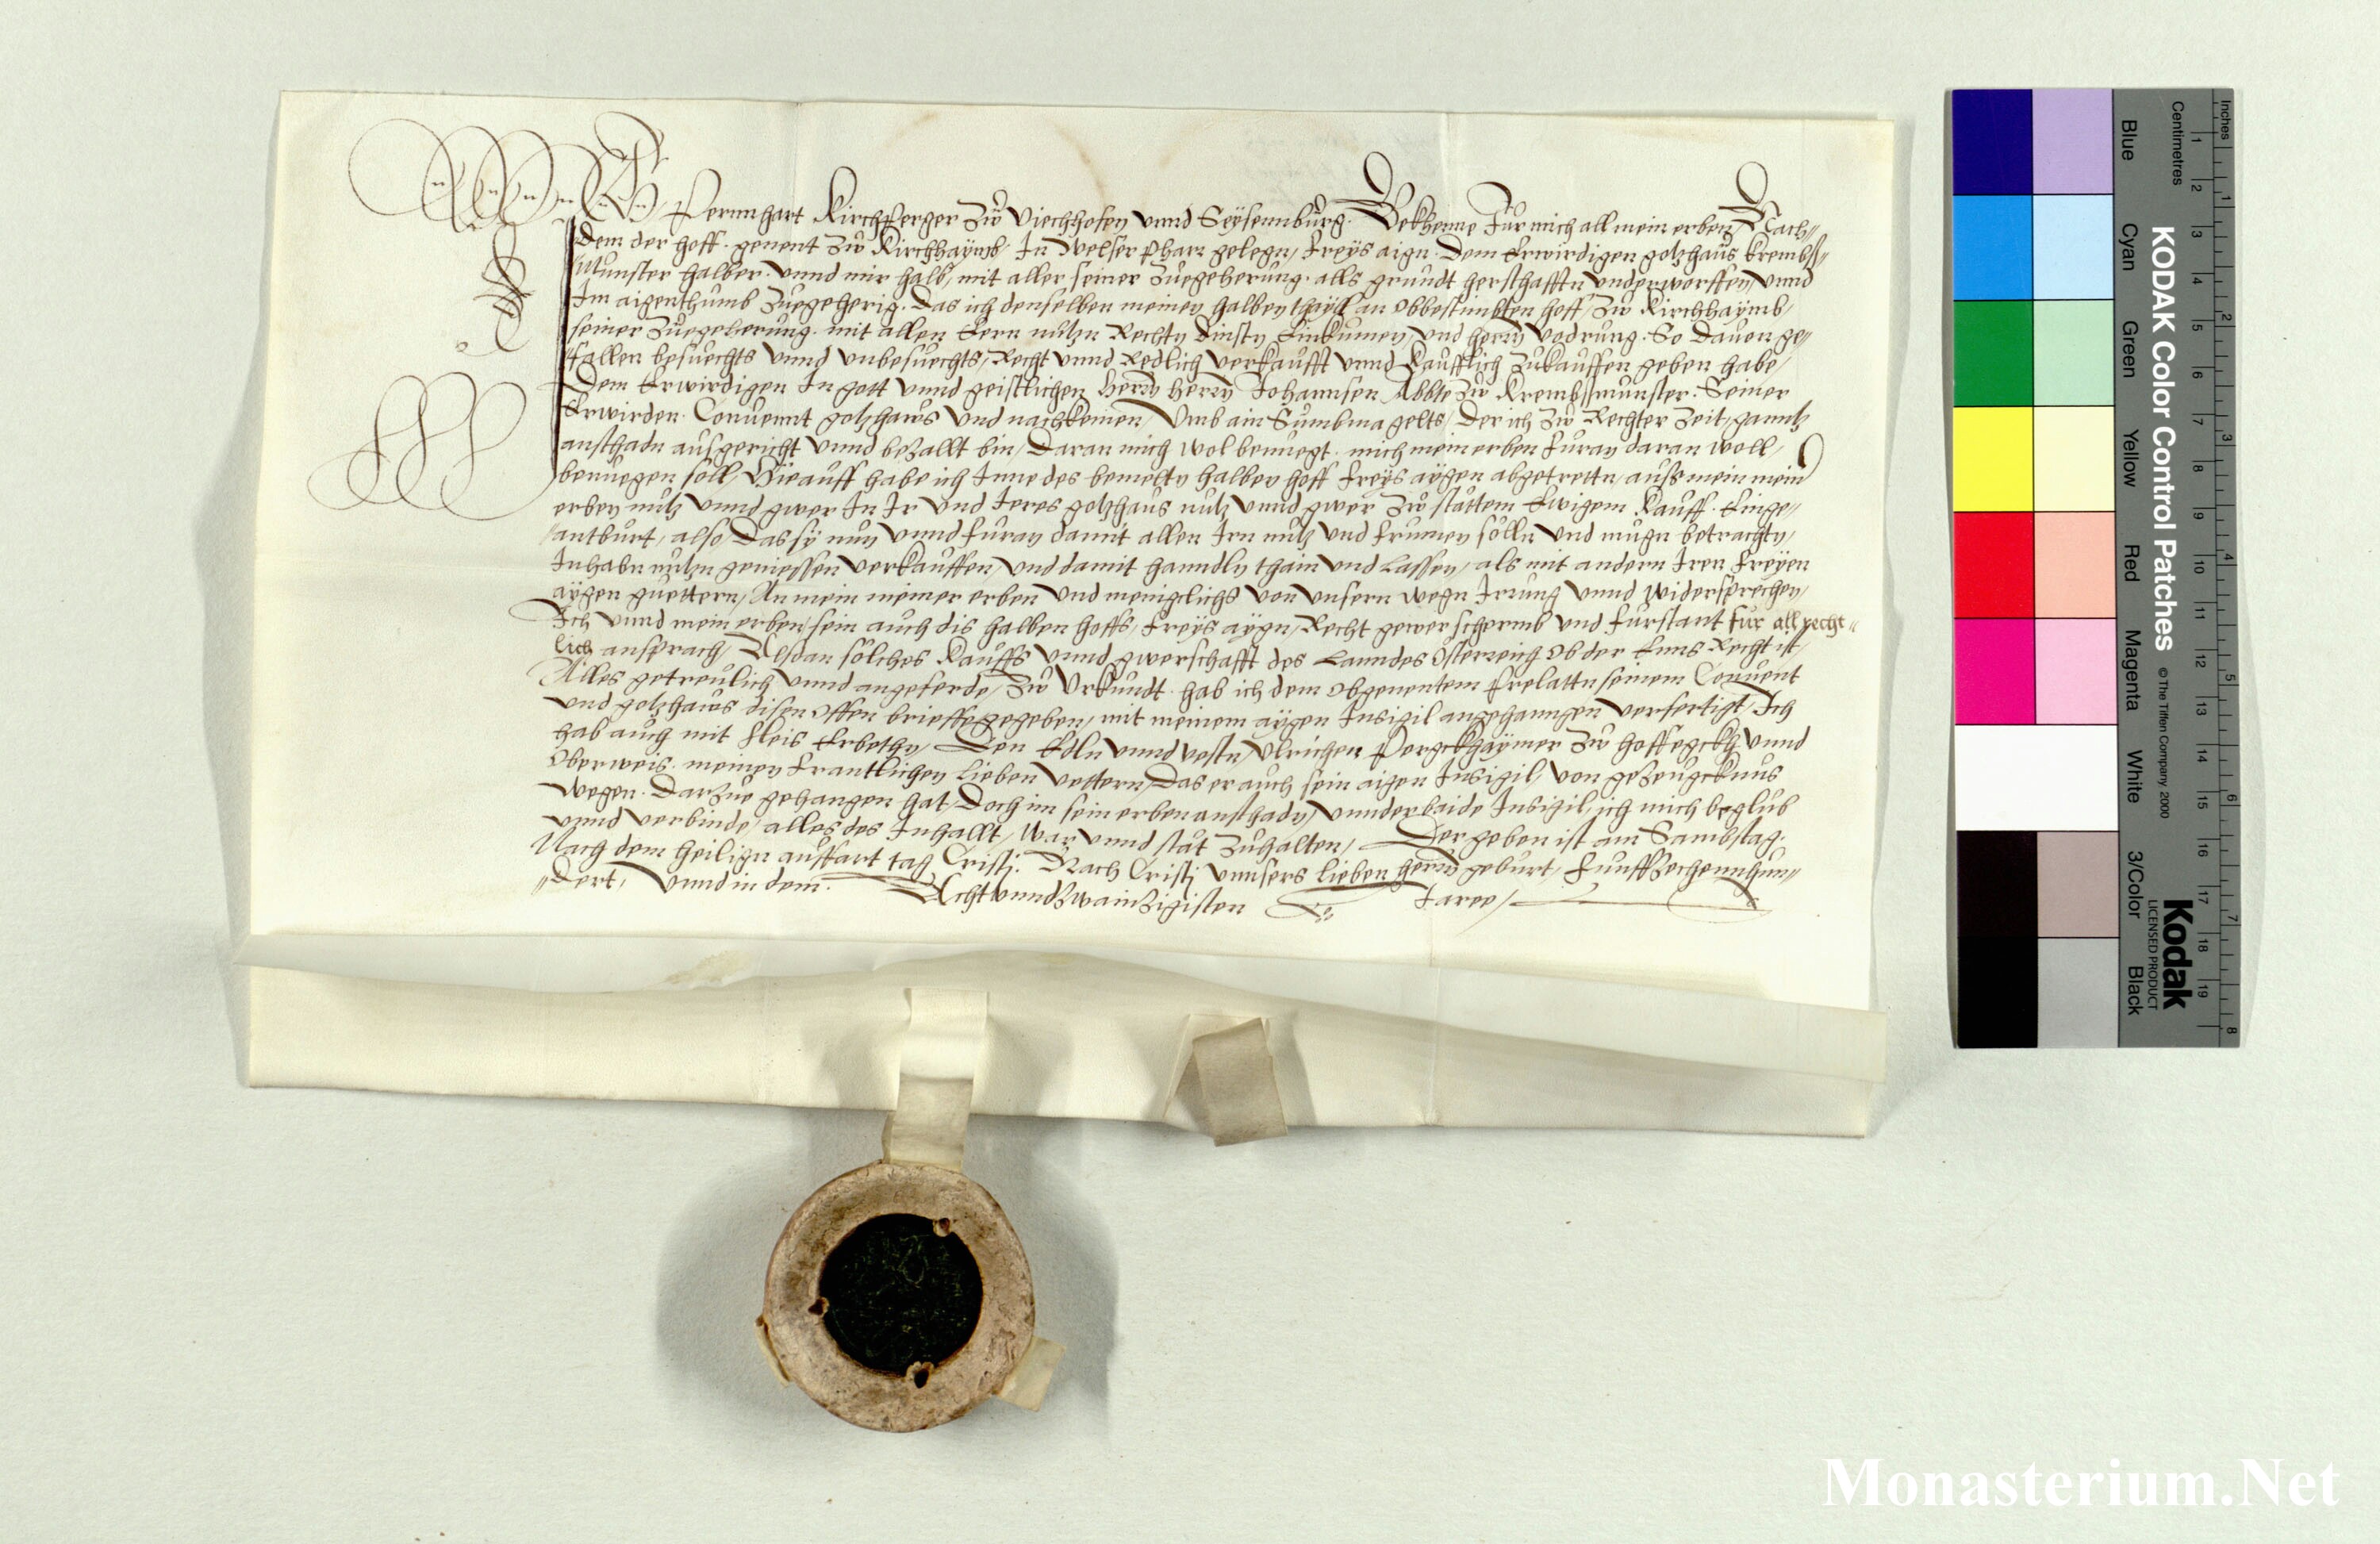 Ich Pernnhart Kirchperger Zw Viechhofen vnnd Seÿsennbürg. Bekhenne Für mich all mein erben, Nach//
dem der hoff. genent Zw Kirchhaÿmb. In Welser pharr gelegn, Freÿs aign. Dem Erwirdigen gotzhaus krembß//
Münster halber. vnnd mir halb, mit aller seiner Zuegeherung. alls grundt herschafftn vnderworffen, vnnd
Im aigenthumb Zuegeherig. Das ich denselben meinen halben thayll an obbestimbten hoff, Zw Kirchhaÿmb,
seiner Zuegeherung. mit allen Eern nutzn Rechtn dinstn Einkumen, vnd herrn vodrung. So dauon ge//
fallen besuechts vnnd vnbesuechts, Recht vnnd Redlich verkaufft vnnd Kaufflich Zukauffen geben habe,
Dem Erwirdigen In gott vnnd geistlichen Herrn herrn Johannsen Abbte Zw Krembßmunster. Seiner
Erwirden. Conuennt gotzhaws vnd nachkemen, Vmb ain Sumbma gelts, Der ich Zw Rechter Zeit, ganntz
anschadn ausgericht vnnd beZallt bin, Daran mich wol benuegt. mich mein erben furan daran woll,
benuegen soll, Hieauff habe ich Inne des bemeltn halben hoff Freÿs aÿgen abgetrettn, auß mein mein
erben nutz vnnd gwer In Ir vnd Ieres gotzhaus nutz vnnd gwer Zw stattem Ewigem Kauff. Einge//
//antburt, also, Das sÿ nun vnnd furan damit allen Irn nutz vnd frumen solln vnd mugn betrachtn,
Inhabn nutzn geniessen verkauffen, vnd damit hanndln thain vnd Lassen, als mit andern Iren Freÿen
aÿgen guettern, An mein meiner erben vnd menigclichs von vnsern wegn Irrung vnnd widersprechen,
Ich vnnd mein erben, sein auch dis halben hoffs, Freÿs aÿgn, Recht gewer schermb vnd furstant für all recht//
lich ansprach, Alsdan solches Kauffs vnnd gwerschafft des Lanndes Osterreich ob der Enns Recht ist,
Alles getreulich vnnd angeferde, Zw Vrkundt. hab ich dem obgenentem Prelattn seinem Conuent
vnd gotzhaws disen offen brieffe gegeben, mit meinem aÿgen Insigil angehanngen verfertigt, Ich
hab auch mit Fleis Erbethn, Den Edln vnnd vestn, Vlrichen Pergckhaÿmer Zw hoffegckh vnnd
Oberweis. meinen frantlichen lieben vettern, Das er auch sein aigen Insigil von geZeugcknus
wegen. DarZue gehangen hat, Doch im sein erben anschadn, vnnder baide Insigil, ich mich beglub
vnnd verbinde, alles des Inhallt, war vnnd stät Zuhalten, Der geben ist am Sambstag.
Nach dem heilign auffart tag Cristj. Nach Cristj vnnsers lieben herrn geburt, FunffZechennhun//
//dert, vnnd in dem. AchtvnndZwainZigisten Jaree,
KODAK Color Control Patches © The Tiffen Company 2000
Kodak
LICENSED PRODUCT
Inches
1 2 3 4 5 6 7 8
Centimetres
1 2 3 4 5 6 7 8 9 10 11 12 13 14 15 16 17 18 19
Blue Cyan Green Yellow Red Magenta White 3/Color Black
Monasterium.Net